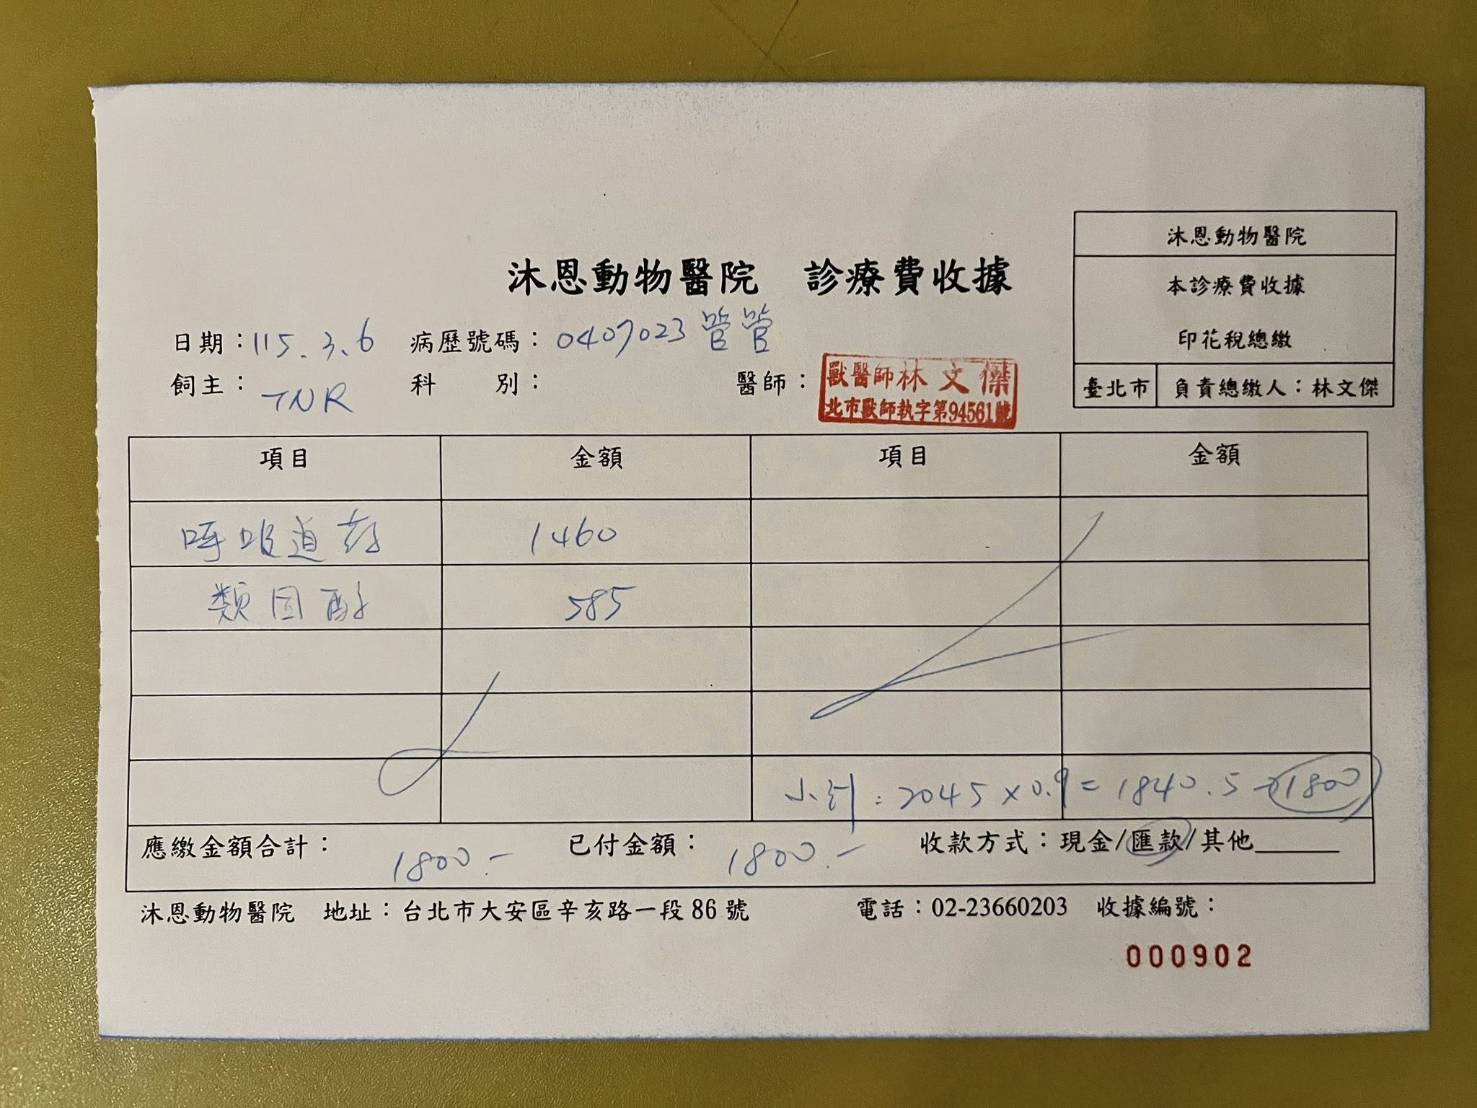 沐恩動物醫院
本診療費收據
印花稅總繳
臺北市 負責總繳人：林文傑
沐恩動物醫院 診療費收據
日期：115.3.6 病歷號碼：0407023 管管
飼主：TNR 科 別： 醫師：
獸醫師林文傑
北市獸師執字第94561號
項目 金額 項目 金額
呼吸道药 1460
類固醇 585
小計：2045×0.9=1840.5→1800
應繳金額合計：1800.- 已付金額：1800.- 收款方式：現金/匯款/其他______
沐恩動物醫院 地址：台北市大安區辛亥路一段86號 電話：02-23660203 收據編號：
000902